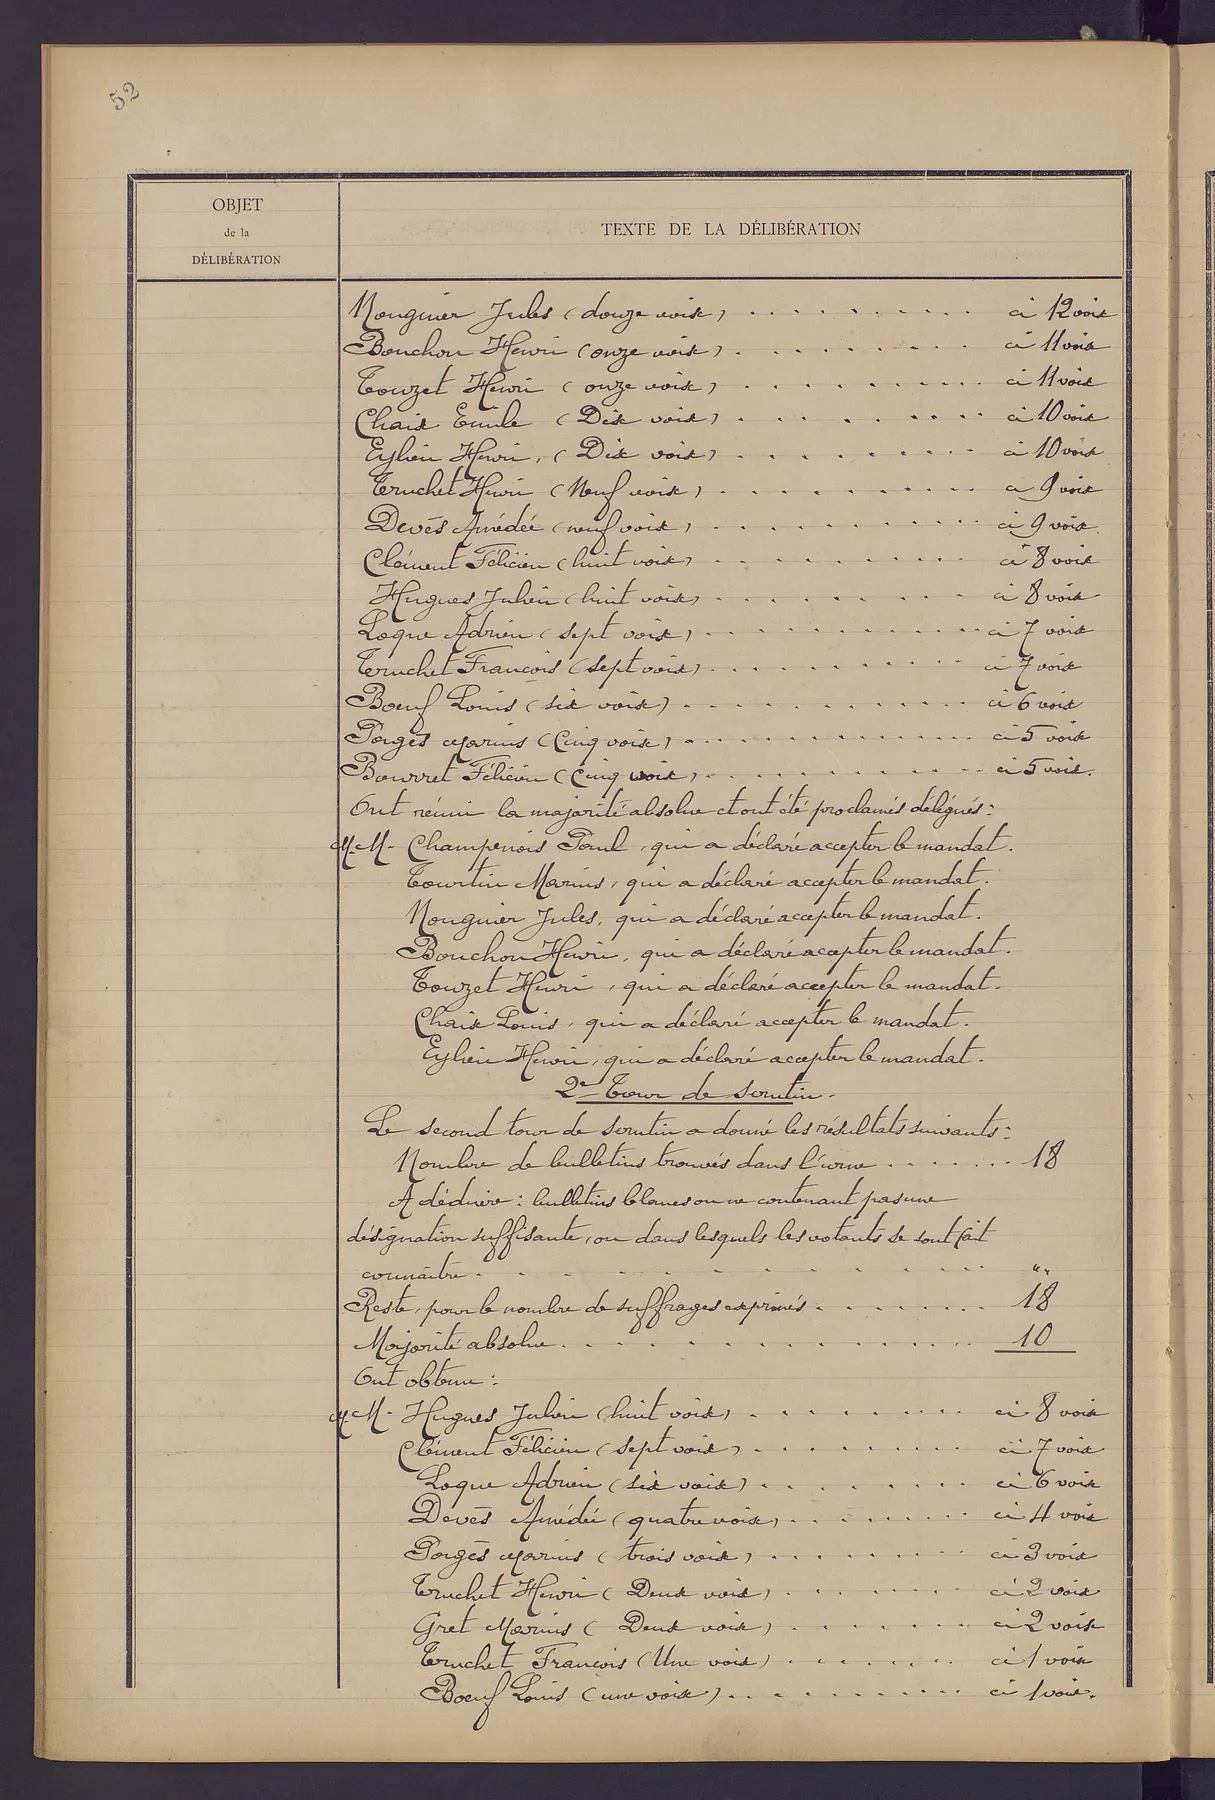 52
OBJET
de la
DÉLIBÉRATION
TEXTE DE LA DÉLIBÉRATION
Nouguier Jules (douze voix) . . . . . . . . . . ci 12 voix
Bouchon Henri (onze voix) . . . . . . . . . . ci 11 voix
Touzet Henri (onze voix) . . . . . . . . . . ci 11 voix
Chaix Emile (Dix voix) . . . . . . . . . . ci 10 voix
Eylieu Henri, (Dix voix) . . . . . . . . . . ci 10 voix
Truchet Henri (Neuf voix) . . . . . . . . . . ci 9 voix
Devès Amédée (neuf voix) . . . . . . . . . . ci 9 voix
Clément Félicien (huit voix) . . . . . . . . . . ci 8 voix
Hugues Julien (huit voix) . . . . . . . . . . ci 8 voix
Loque Adrien (sept voix) . . . . . . . . . . ci 7 voix
Truchet François (sept voix) . . . . . . . . . . ci 7 voix
Bœuf Louis (six voix) . . . . . . . . . . ci 6 voix
Pougès Marius (Cinq voix) . . . . . . . . . . ci 5 voix
Bourret Félicien (Cinq voix) . . . . . . . . . . ci 5 voix.
Ont réuni la majorité absolue et ont été proclamés délégués :
M.M. Champenois Paul, qui a déclaré accepter le mandat.
Tourtin Marius, qui a déclaré accepter le mandat.
Nouguier Jules, qui a déclaré accepter le mandat.
Bouchon Henri, qui a déclaré accepter le mandat.
Touzet Henri, qui a déclaré accepter le mandat.
Chaix Louis, qui a déclaré accepter le mandat.
Eylieu Henri, qui a déclaré accepter le mandat.
2e Tour de scrutin.
Le second tour de scrutin a donné les résultats suivants :
Nombre de bulletins trouvés dans l'urne . . . . . . . 18
A déduire : bulletins blancs ou ne contenant pas une
désignation suffisante, ou dans lesquels les votants se sont fait
connaître . . . . . . . . . . . . . . "
Reste, pour le nombre de suffrages exprimés . . . . . . . . 18
Majorité absolue . . . . . . . . . . . . . . 10
Ont obtenu :
M.M. Hugues Julien (huit voix) . . . . . . . . ci 8 voix
Clément Félicien (sept voix) . . . . . . . . ci 7 voix
Loque Adrien (six voix) . . . . . . . . ci 6 voix
Devès Amédée (quatre voix) . . . . . . . . ci 4 voix
Pougès Marius (trois voix) . . . . . . . . ci 3 voix
Truchet Henri (Deux voix) . . . . . . . . ci 2 voix
Gret Marius (Deux voix) . . . . . . . . ci 2 voix
Truchet François (Une voix) . . . . . . . . ci 1 voix
Bœuf Louis (une voix) . . . . . . . . . ci 1 voix.